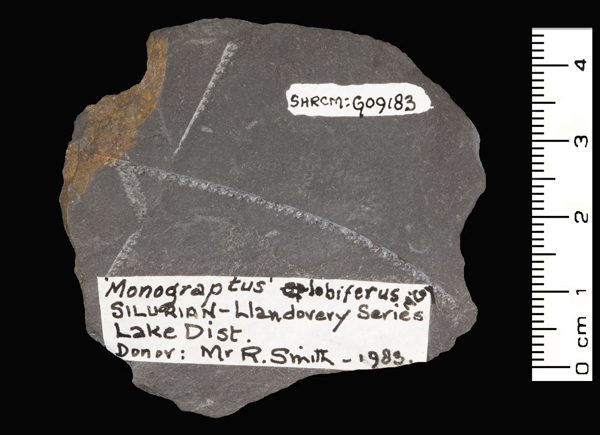 SHRCM:G09183
'Monograptus' lobiferus
SILURIAN - Llandovery Series
Lake Dist.
Donor: Mr R. Smith - 1983.
4
3
2
1
0 cm